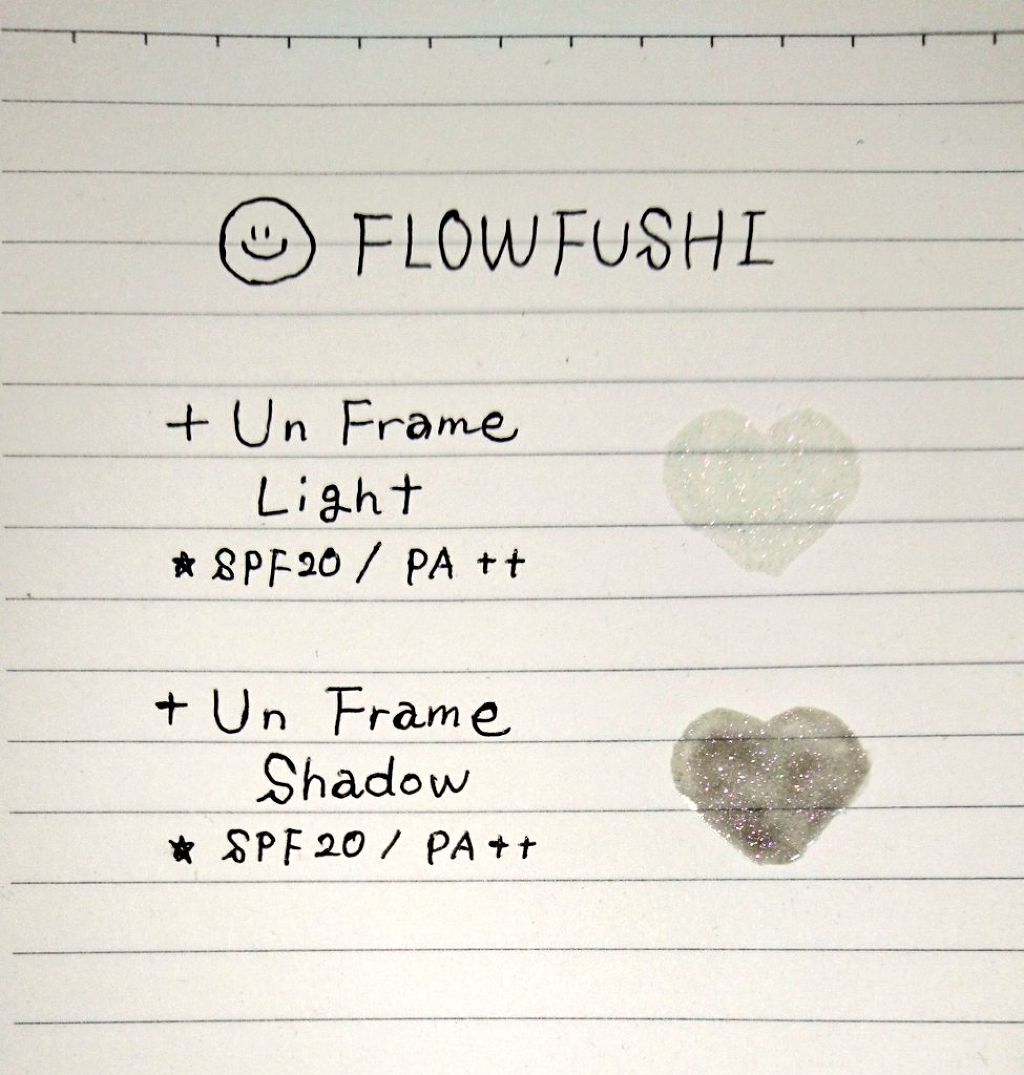 FLOWFUSHI
+ Un Frame
Light
★ SPF20 / PA ++
+ Un Frame
Shadow
★ SPF20 / PA ++